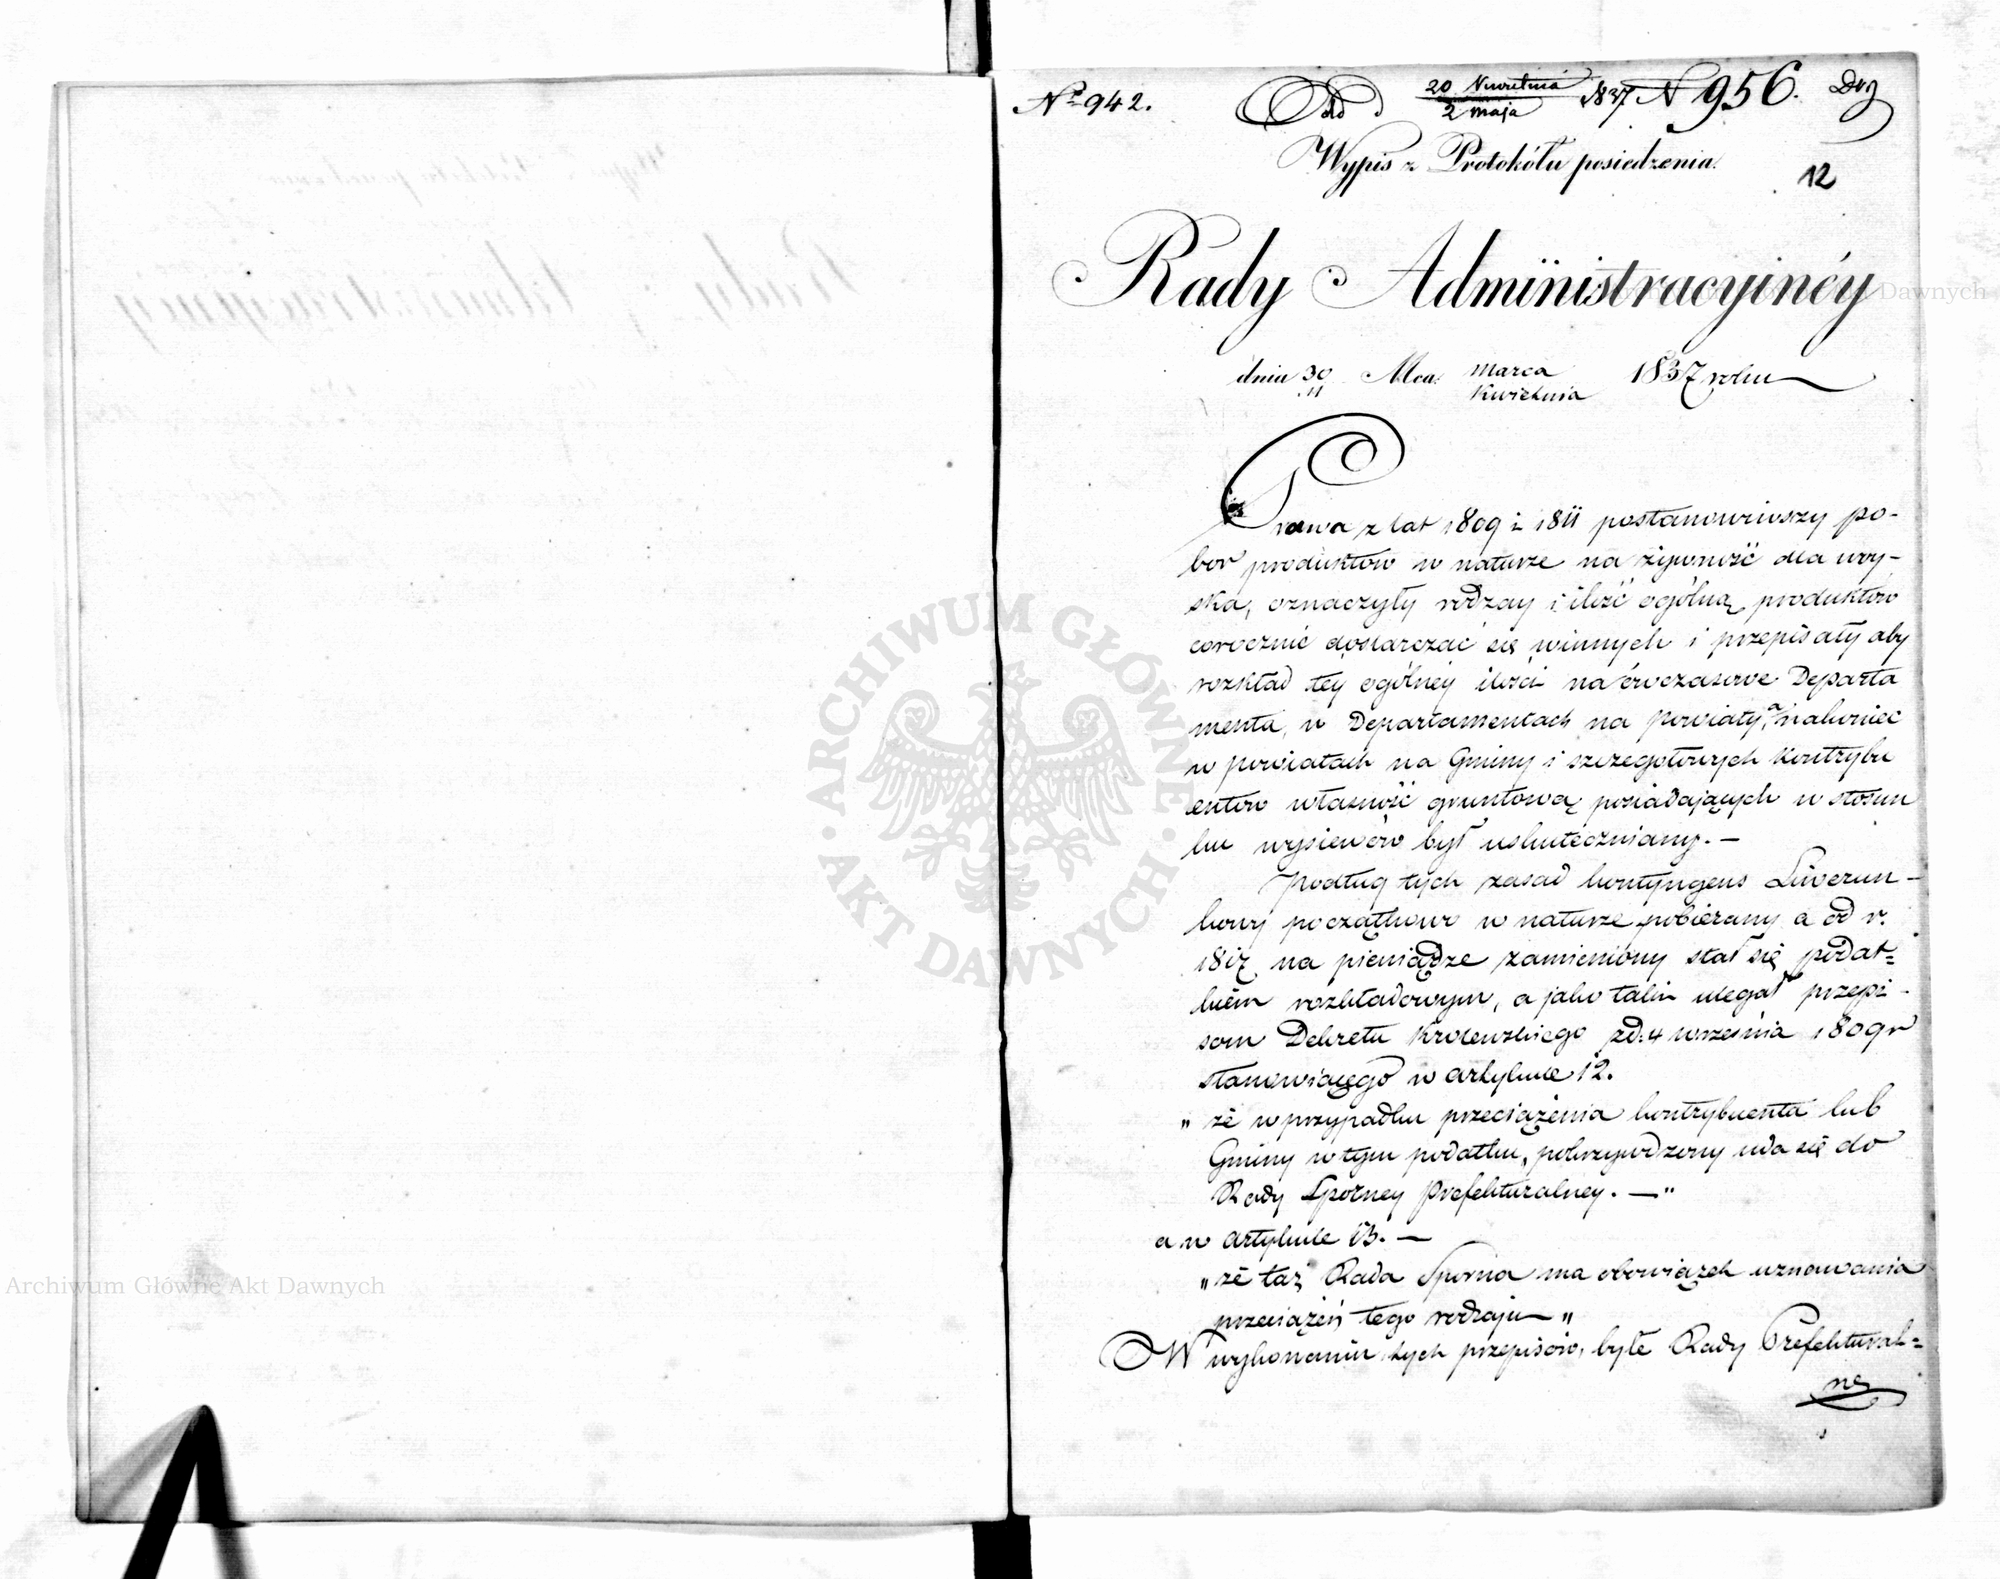 No 942.
Odd d 20 Kwietnia / 2 maja 1837 N 956.
Wypis z Protokółu posiedzenia.
12
Rady Administracyinéy
dnia 30/11 Mca Marca/Kwietnia 1837 roku
Prawa z lat 1809 i 1811 postanowiwszy po-
bor produktow w naturze na żywność dla woy-
ska, oznaczyły rodzay i ilość ogólną produktów
corocznie dostarczać się winnych i przepisały aby
rozkład téy ogólnéy ilości na ówczasowe Departa
menta, w Departamentach na Powiaty, a nakoniec
w powiatach na Gminy i szczegółowych kontrybu
entów własność gruntową posiadających w stosun
ku wysiewów był uskuteczniany. —
Podług tych zasad kontyngens Liwerun-
kowy początkowo w naturze pobierany a od r.
1817 na pieniądze zamieniony stał się podat=
kiem rozkładowym, a jako taki ulegał przepi-
som Dekretu Krolewskiego z d. 4 września 1809 r
stanowiącego w artykule 12.
„ że w przypadku przeciążenia kontrybuenta lub
Gminy w tym podatku, pokrzywdzony uda się do
Rady Sporney Prefekturalney. — "
a w artykule 13. —
„ że taż Rada Sporna ma obowiązek uznawania
przeciążeń tego rodzaju "
W wykonaniu tych przepisów, byłe Rady Prefektural=
ne
ARCHIWUM GŁÓWNE AKT DAWNYCH
Archiwum Główne Akt Dawnych
Dawnych